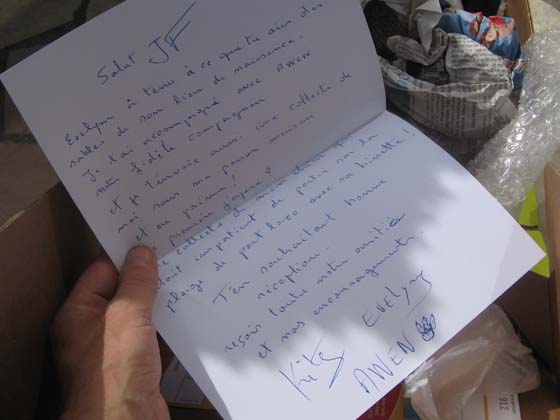 Salut JF
Evelyne à tenu à ce que tu aies des
sables de son lieu de naissance.
Je l'ai accompagné avec AWEN
notre fidèle compagnon
et t'envoie aussi une collecte de
moi sous ma
et en prime!
première
collecte du mois
tout impatient de partir sur la
plage de port avec sa binette!
T'en souhaitant bonne
réception.
reçois toute notre amitié
et nos encouragements.
Kity Evelyne
AWEN
912